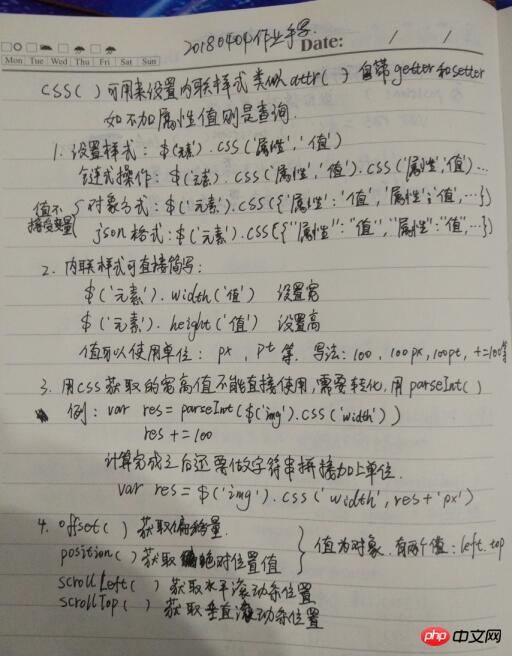 20180404作业手写.
Date: / /
Mon Tue Wed Thu Fri Sat Sun
css( ) 可用来设置内联样式 类似attr( ) 自带getter和setter
如不加属性值则是查询.
1. 设置样式: $('元素').css('属性','值')
链式操作: $('元素').css('属性','值').css('属性','值')...
值不接受变量
对象方式: $('元素').css({'属性':'值','属性':'值',...})
json格式: $('元素').css({"属性":"值","属性":"值",...})
2. 内联样式可直接简写:
$('元素').width('值') 设置宽
$('元素').height('值') 设置高
值可以使用单位: px, pt 等. 写法: 100, 100px, 100pt, +=100等
3. 用css获取的宽高值不能直接使用,需要转化,用parseInt( )
例: var res = parseInt($('img').css('width'))
res += 100
计算完成之后还要做字符串拼接加上单位.
var res = $('img').css('width', res+'px')
4. offset( ) 获取偏移量.
position( ) 获取绝对位置值
值为对象. 有两个值: left. top
scrollLeft( ) 获取水平滚动条位置
scrollTop( ) 获取垂直滚动条位置
php中文网